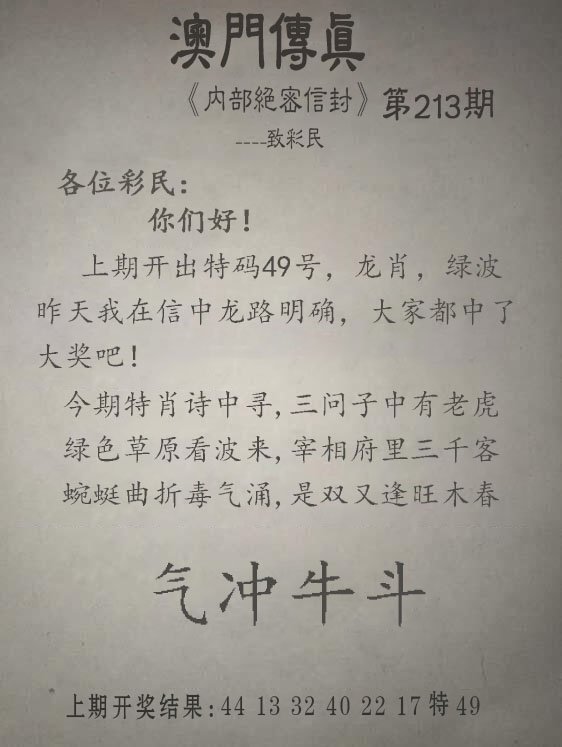 澳門傳眞
《内部絕密信封》第213期
----致彩民
各位彩民:
你们好!
上期开出特码49号，龙肖，绿波
昨天我在信中龙路明确，大家都中了
大奖吧!
今期特肖诗中寻,三问子中有老虎
绿色草原看波来,宰相府里三千客
蜿蜒曲折毒气涌,是双又逢旺木春
气冲牛斗
上期开奖结果:44 13 32 40 22 17特49